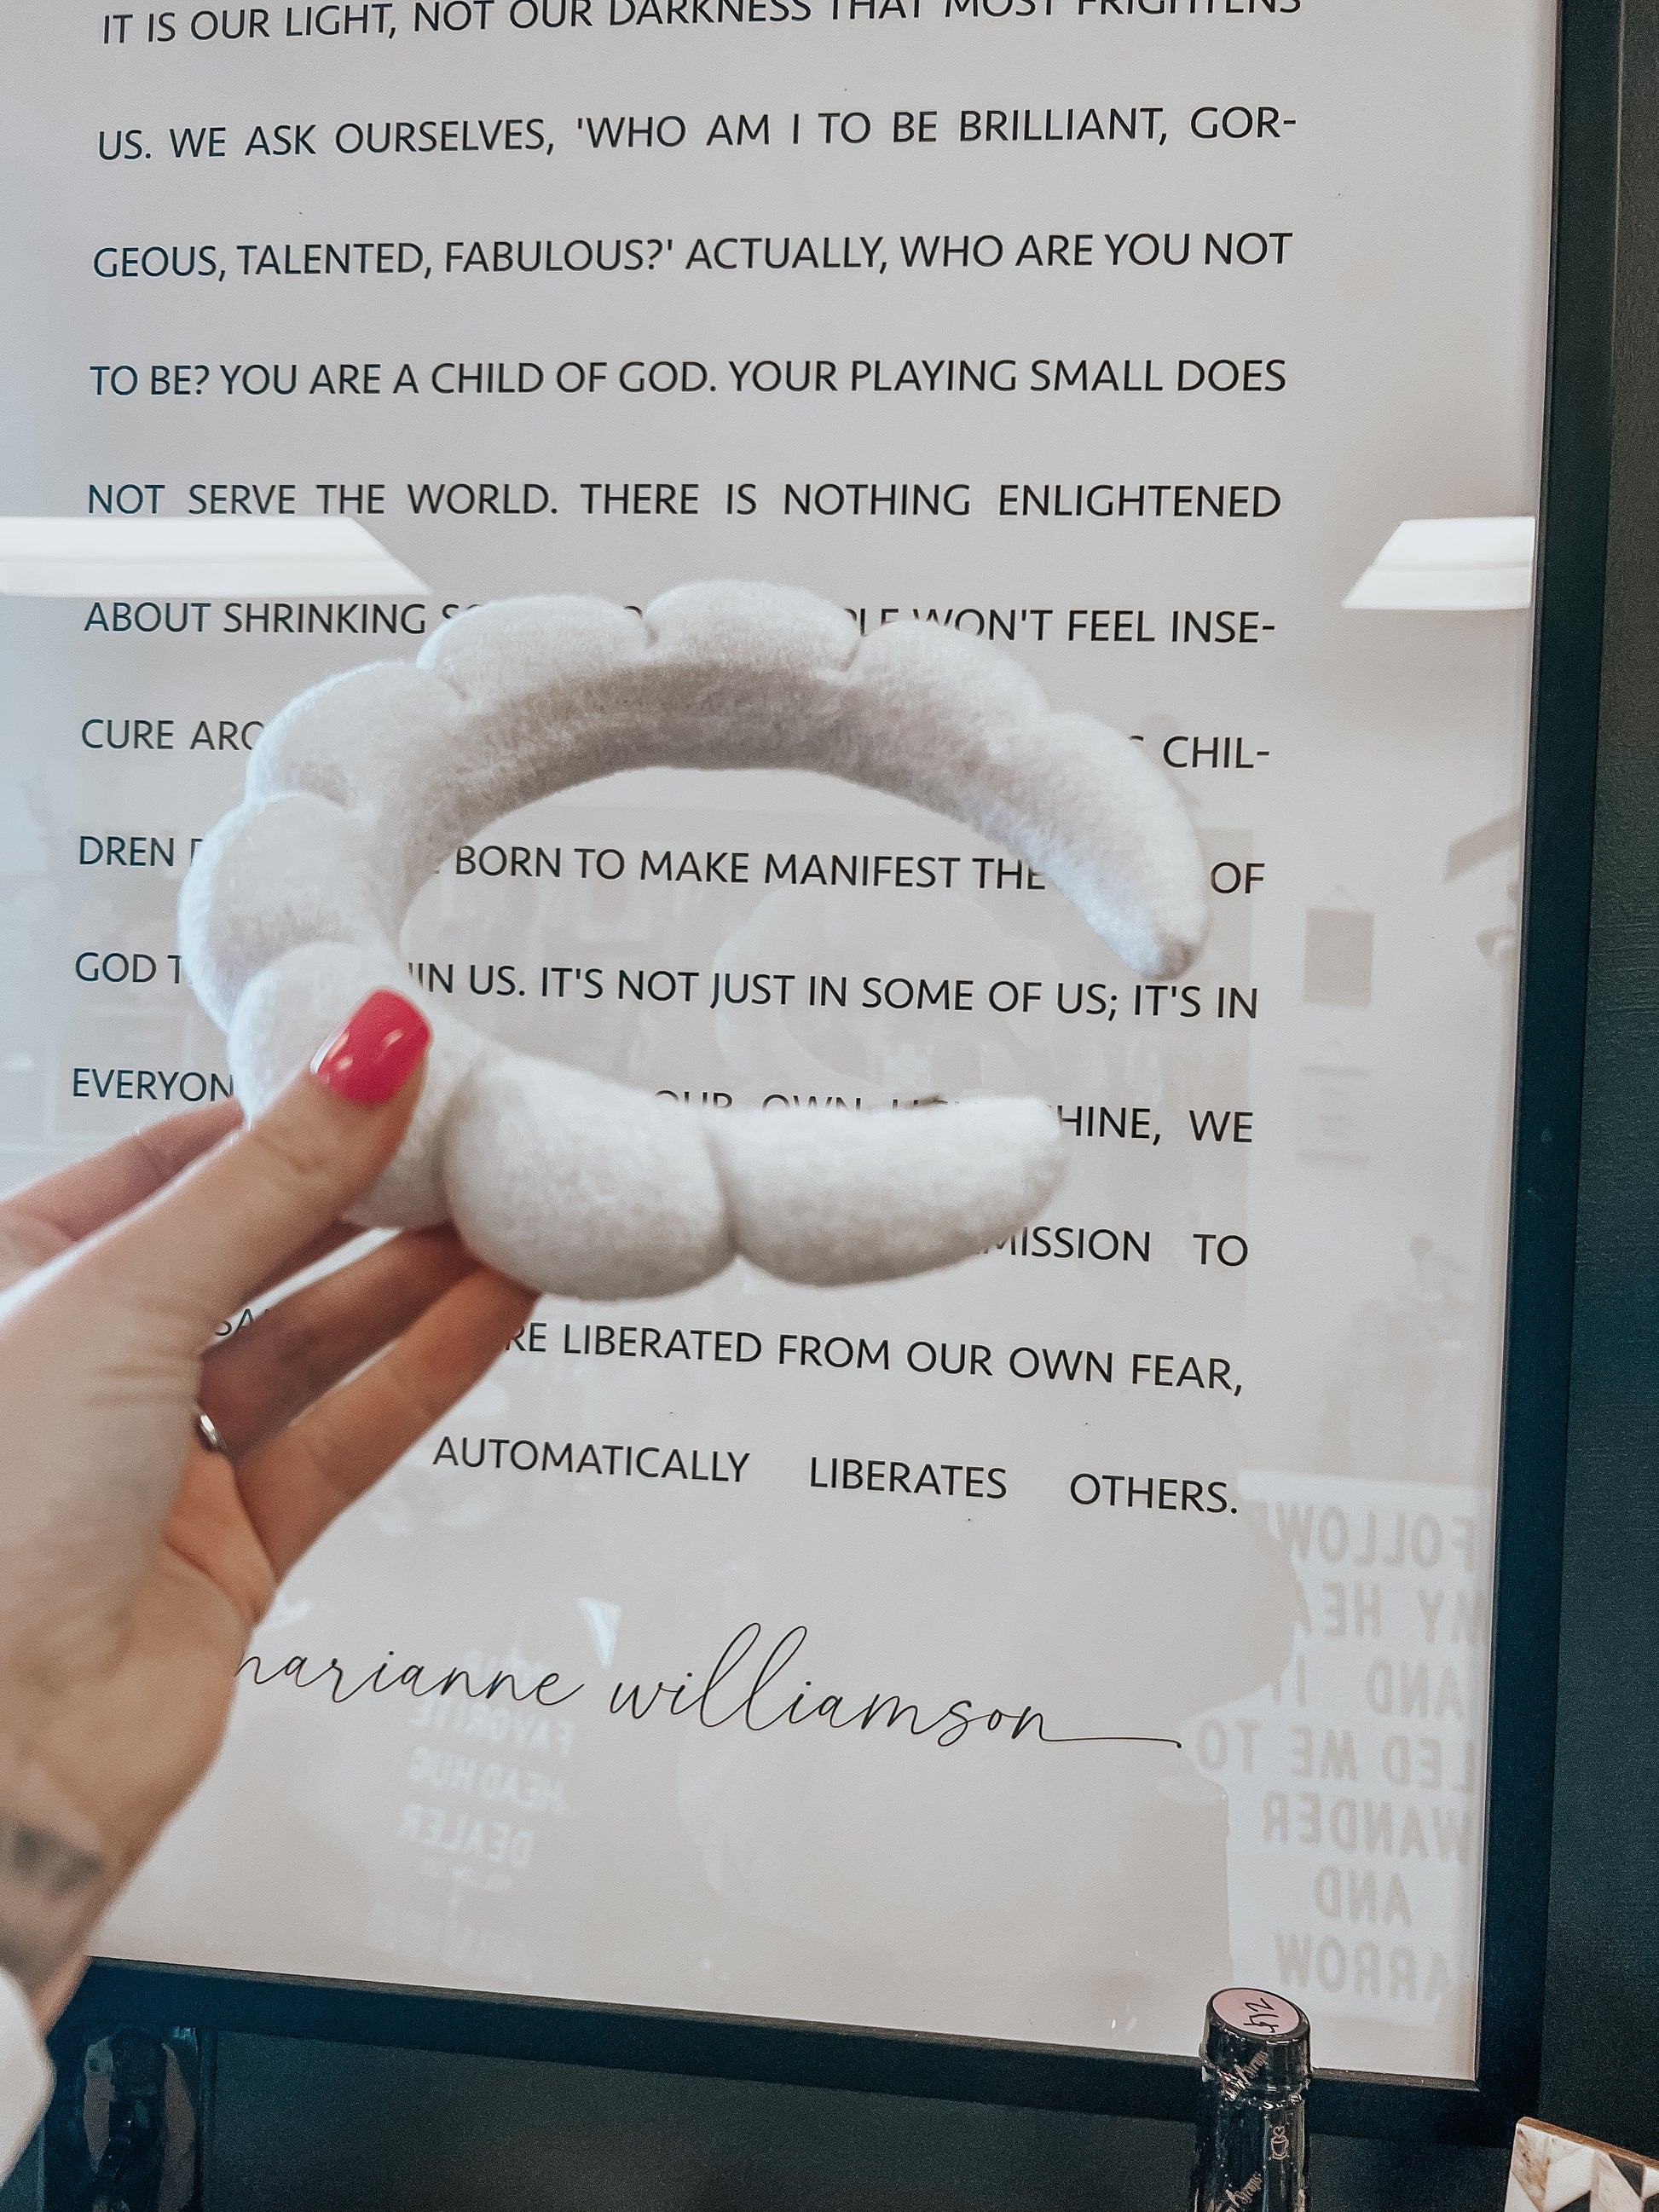 IT IS OUR LIGHT, NOT OUR DARKNESS THAT MOST FRIGHTENS
US. WE ASK OURSELVES, 'WHO AM I TO BE BRILLIANT, GOR-
GEOUS, TALENTED, FABULOUS?' ACTUALLY, WHO ARE YOU NOT
TO BE? YOU ARE A CHILD OF GOD. YOUR PLAYING SMALL DOES
NOT SERVE THE WORLD. THERE IS NOTHING ENLIGHTENED
ABOUT SHRINKING WON'T FEEL INSE-
CURE CHIL-
DREN BORN TO MAKE MANIFEST THE OF
GOD IN US. IT'S NOT JUST IN SOME OF US; IT'S IN
OUR OWN WE
TO
LIBERATED FROM OUR OWN FEAR,
AUTOMATICALLY LIBERATES OTHERS.
marianne williamson
FOLLOW
MY
AND
LED ME TO
WANDER
AND
FAVORITE
HEAD HUG
DEALER